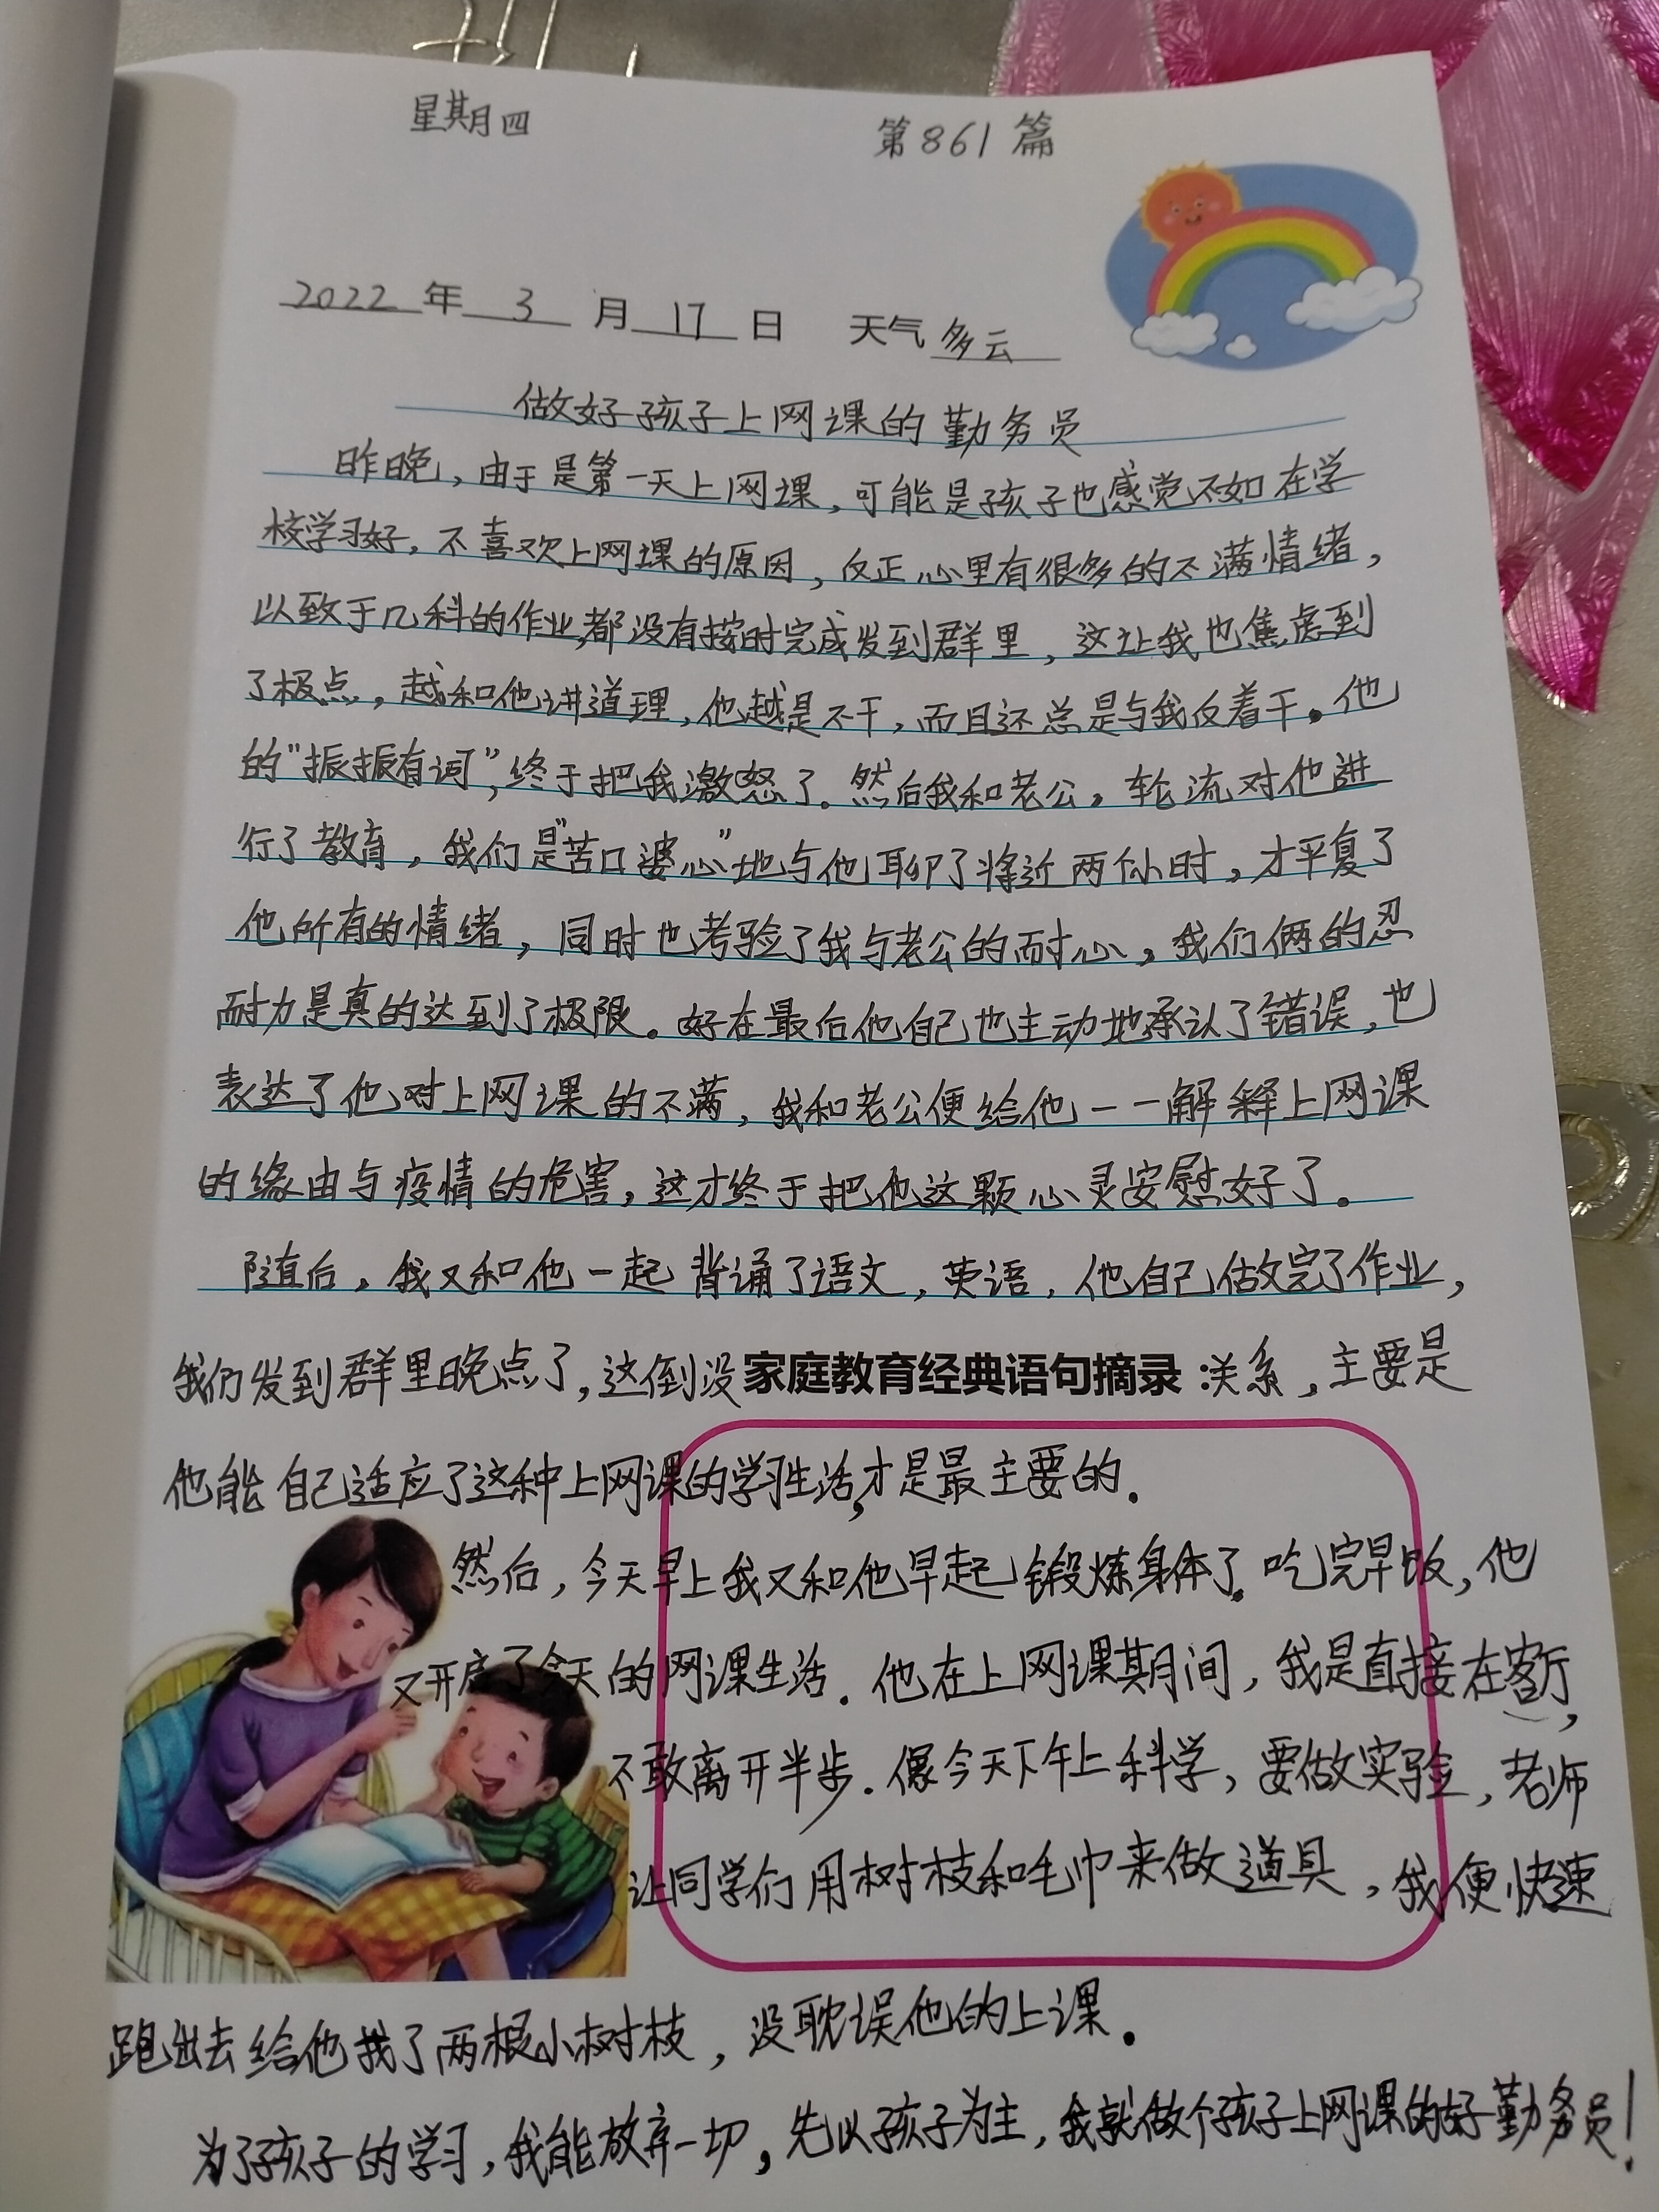 星期四 第861篇
2022年3月17日 天气多云
做好孩子上网课的勤务员
昨晚，由于是第一天上网课，可能是孩子也感觉不如在学
校学习好，不喜欢上网课的原因，反正心里有很多的不满情绪，
以致于几科的作业，都没有按时完成发到群里，这让我也焦虑到
了极点，越和他讲道理，他越是不干，而且还总是与我反着干。他
的“振振有词”，终于把我激怒了。然后我和老公，轮流对他进
行了教育，我们是“苦口婆心”地与他聊了将近两个小时，才平复了
他所有的情绪，同时也考验了我与老公的耐心，我们俩的忍
耐力是真的达到了极限。好在最后他自己也主动地承认了错误，也
表达了他对上网课的不满，我和老公便给他一一解释上网课
的缘由与疫情的危害，这才终于把他这颗心灵安慰好了。
随后，我又和他一起背诵了语文，英语，他自己做完了作业，
我们发到群里晚点了，这倒没家庭教育经典语句摘录：关系，主要是
他能自己适应了这种上网课的学习生活，才是最主要的。
然后，今天早上我又和他早起锻炼身体了。吃完早饭，他
又开启了今天的网课生活。他在上网课期间，我是直接在客厅，
不敢离开半步。像今天下午上科学，要做实验，老师
让同学们用树枝和毛巾来做道具，我便快速
跑出去给他找了两根小树枝，没耽误他的上课。
为了孩子的学习，我能放弃一切，先以孩子为主，我就做个孩子上网课的好勤务员！